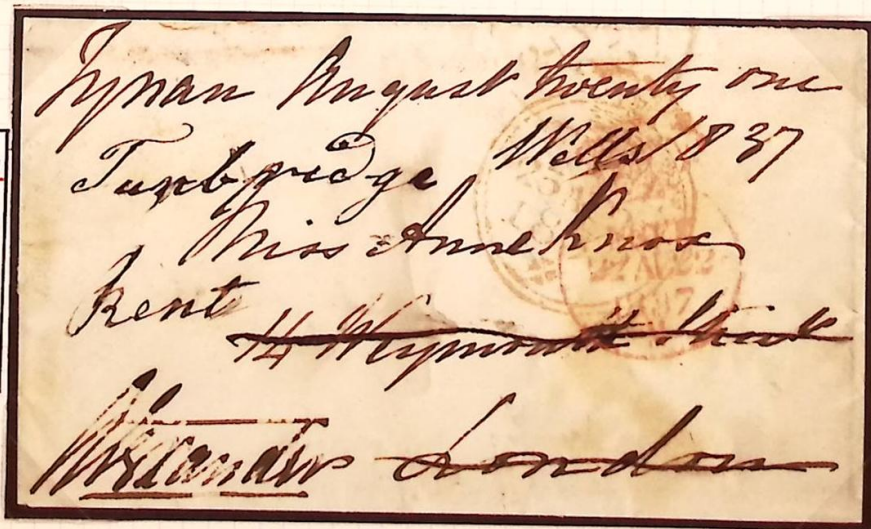 Tynan August twenty one
Tunbridge Wells 1837
Miss Anne Knox
Kent
14 Weymouth Street
London